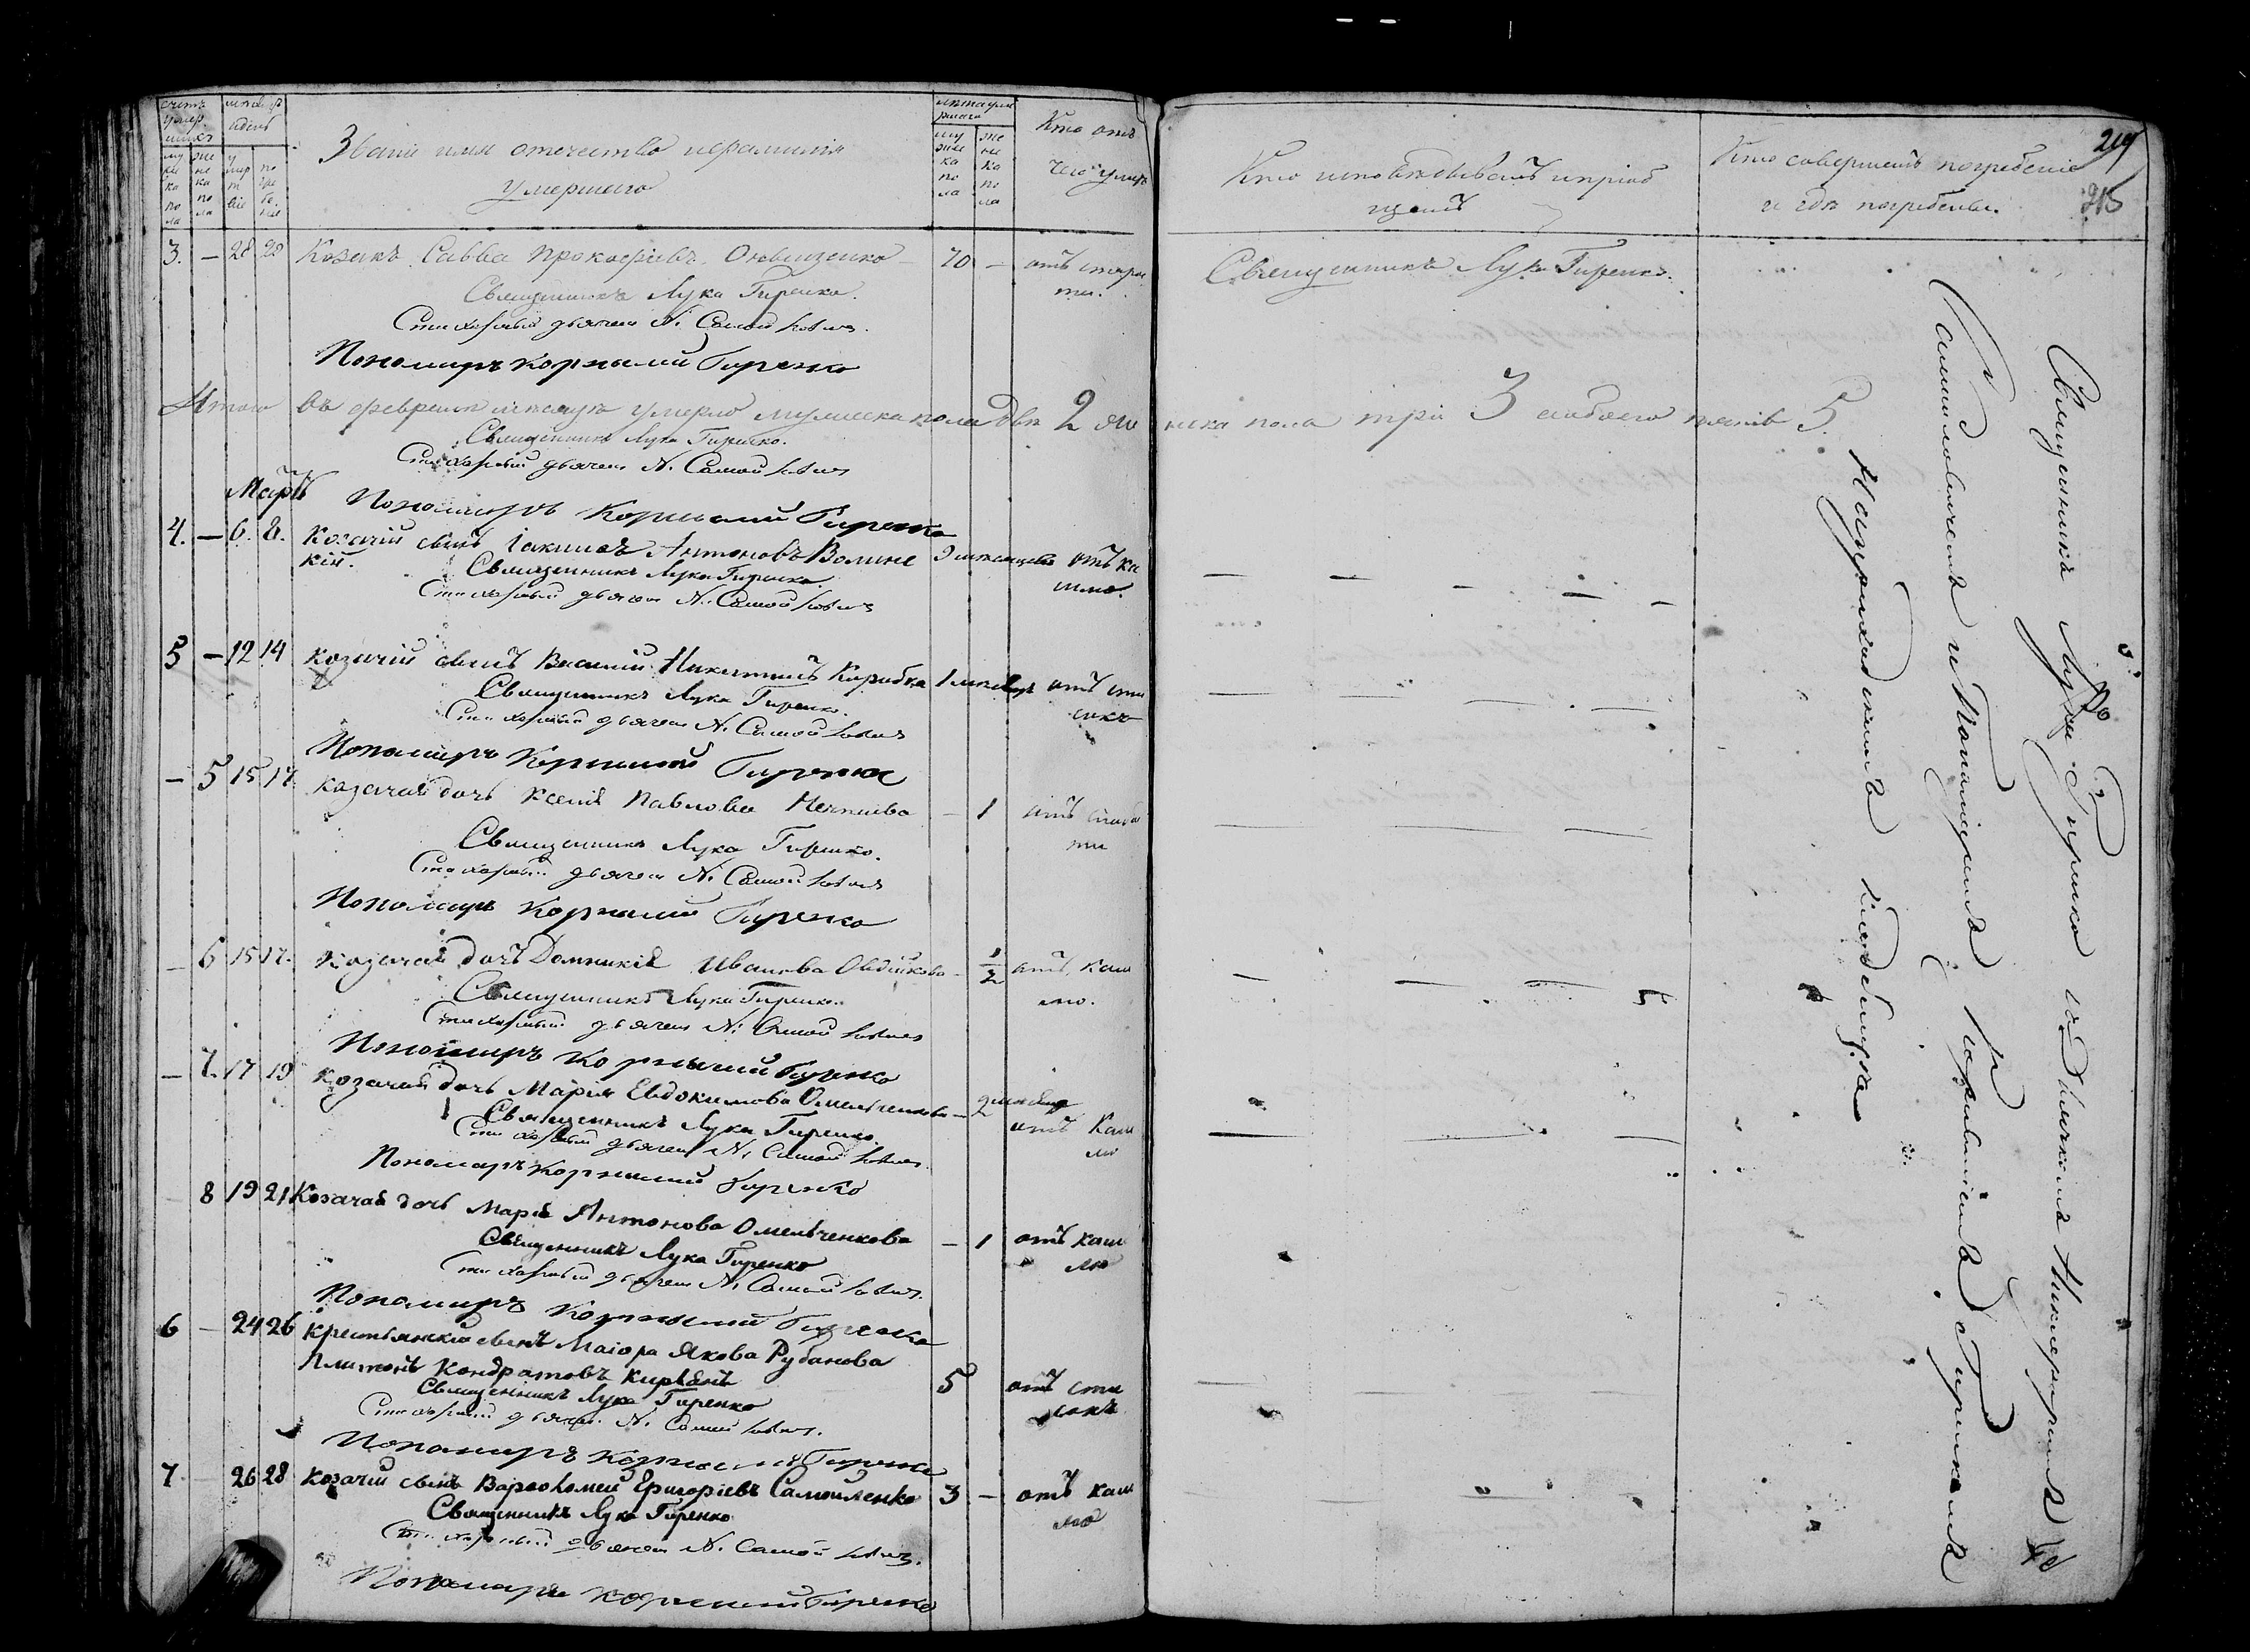 счетъ умер шихъ
му же ска по ла
же не ка по ла
мѣсяцъ и день
у мер т віе
по гре бе ніе
Званіе имя отечество и фамилія
умершаго
лѣта умер шаго
му жес ка по ла
же нс ка по ла
Кто отъ
чего умеръ
Кто исповѣдывалъ и пріоб
щалъ
Кто совершалъ погребеніе
и гдѣ погребены.
219
215
3. — 28 29 Козакъ Савва Прокофіевъ — 70 — отъ старос
ти.
Священникъ Лука Гиренко.
Священникъ Лука Гиренко.
Стихарный дьячекъ N. Самойловичъ.
Пономаръ Корнилій Гиренко
Итого въ февралѣ мѣсяцѣ умерло мужеска пола два 2 же нска пола три 3 а обоего пять 5.
Священникъ Лука Гиренко.
Стихарный дьячекъ N. Самойловичъ
Мартъ
Пономаръ Корнилій Гиренко
4. — 6. 8. Козачій сынъ Іакимъ Антоновъ Волинс 9 мѣсяцевъ отъ ка
кій. шлю.
Священникъ Лука Гиренко.
Стихарный дьячекъ N. Самойловичъ
5 — 12 14 Козачій сынъ Василій Никитинъ Коробка 1 мѣсяцъ отъ
Священникъ Лука Гиренко.
Стихарный дьячекъ N. Самойловичъ
Пономаръ Корнилій Гиренко
— 5 15 17. Козачая дочь Ксенія Павлова — 1 отъ слабос
ти
Священникъ Лука Гиренко.
Стихарный дьячекъ N. Самойловичъ
Пономаръ Корнилій Гиренко
— 6 15 17. Козачая дочь Домникія Иванова — 1/2 отъ каш
лю.
Священникъ Лука Гиренко.
Стихарный дьячекъ N. Самойловичъ
Пономаръ Корнилій Гиренко
— 7. 17 19 Козачая дочь Марія Евдокимова Омельченкова — 2 отъ каш
лю
Священникъ Лука Гиренко.
Стихарный дьячекъ N. Самойловичъ.
Пономаръ Корнилій Гиренко
— 8 19 21 Козачая дочь Марія Антонова Омельченкова — 1 отъ каш
лю
Священникъ Лука Гиренко
Стихарный дьячекъ N. Самойловичъ.
Пономаръ Корнилій Гиренко
6 — 24 26 Крестьянскій сынъ Маіора Якова Рубанова
Платонъ Кондратовъ 5 отъ
Священникъ Лука Гиренко
Стихарный дьячекъ N. Самойловичъ.
Пономаръ Корнилій Гиренко
7 — 26 28 Козачій сынъ Варѳоломей Григоріевъ Самойленко 3 — отъ каш
лю
Священникъ Лука Гиренко
Стихарный дьячекъ N. Самойловичъ.
Пономаръ Корнилій Гиренко
Священникъ Лука Гиренко съ дьячкомъ Никифоромъ
Самойловичемъ и Пономаремъ Корниліемъ Гиренкомъ
На приходскомъ кладбищѣ